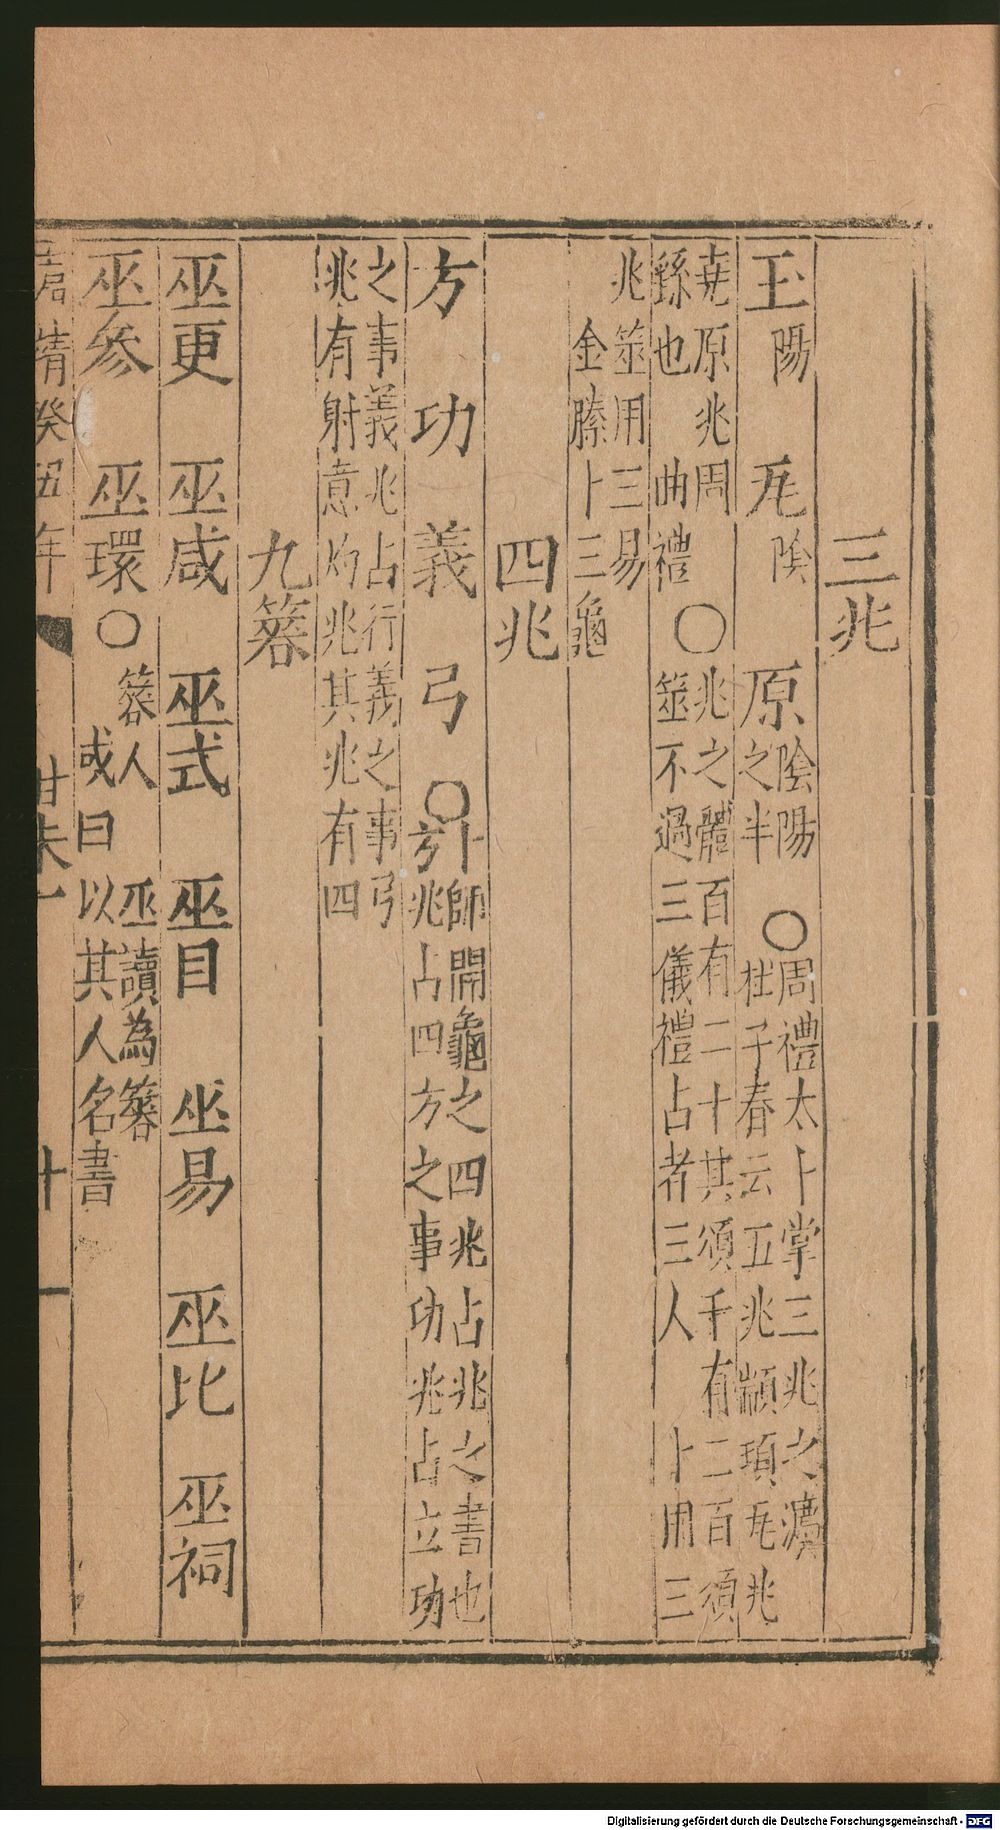 三兆
玉陽 兎陰 原陰陽之半 〇周禮太卜掌三兆之灋杜子春云五兆顓頊兎兆
堯原兆周 〇兆之體百有二十其頌千有二百頌
繇也 曲禮 筮不過三儀禮占者三人 卜用三
兆筮用三易
金縢卜三龜
四兆
方 功 義 弓 〇卜師開龜之四兆占兆之書也方兆占四方之事功兆占立功
之事義兆占行義之事弓
兆有射意灼兆其兆有四
九簭
巫更 巫咸 巫式 巫目 巫易 巫比 巫祠
巫參 巫環〇簭人 巫讀為簭
或曰 以其人名書
嘉靖癸丑年
十一
Digitalisierung gefördert durch die Deutsche Forschungsgemeinschaft - DFG